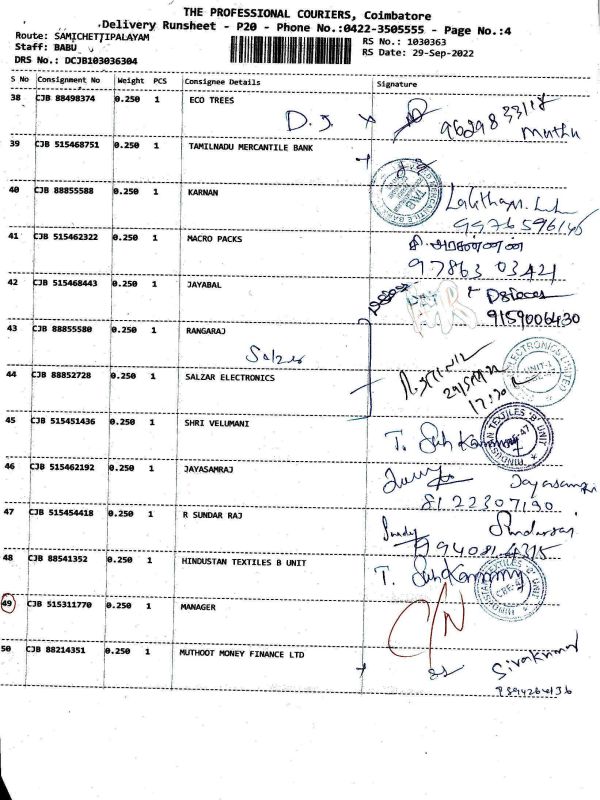 THE PROFESSIONAL COURIERS, Coimbatore
Delivery Runsheet - P20 - Phone No.:0422-3505555 - Page No.:4
Route: SAMICHETTIPALAYAM
RS No.: 1030363
Staff: BABU
RS Date: 29-Sep-2022
DRS No.: DCJB103036304
S No Consignment No Weight PCS Consignee Details Signature
38 CJB 88498374 0.250 1 ECO TREES
D.J 9629833118
Muthu
39 CJB 515468751 0.250 1 TAMILNADU MERCANTILE BANK
TMB
40 CJB 88855588 0.250 1 KARNAN
Lalitha
9976596146
41 CJB 515462322 0.250 1 MACRO PACKS
97863 03421
42 CJB 515468443 0.250 1 JAYABAL
9159006430
43 CJB 88855580 0.250 1 RANGARAJ
Salzer
44 CJB 88852728 0.250 1 SALZAR ELECTRONICS
ELECTRONICS LIMITED
UNIT-1
17:30
45 CJB 515451436 0.250 1 SHRI VELUMANI
HINDUSTAN TEXTILES 'B' UNIT
46 CJB 515462192 0.250 1 JAYASAMRAJ
8122307190
47 CJB 515454418 0.250 1 R SUNDAR RAJ
9408114315
48 CJB 88541352 0.250 1 HINDUSTAN TEXTILES B UNIT
HINDUSTAN TEXTILES 'B' UNIT
49 CJB 515311770 0.250 1 MANAGER
C/N
50 CJB 88214351 0.250 1 MUTHOOT MONEY FINANCE LTD
Sivakumar